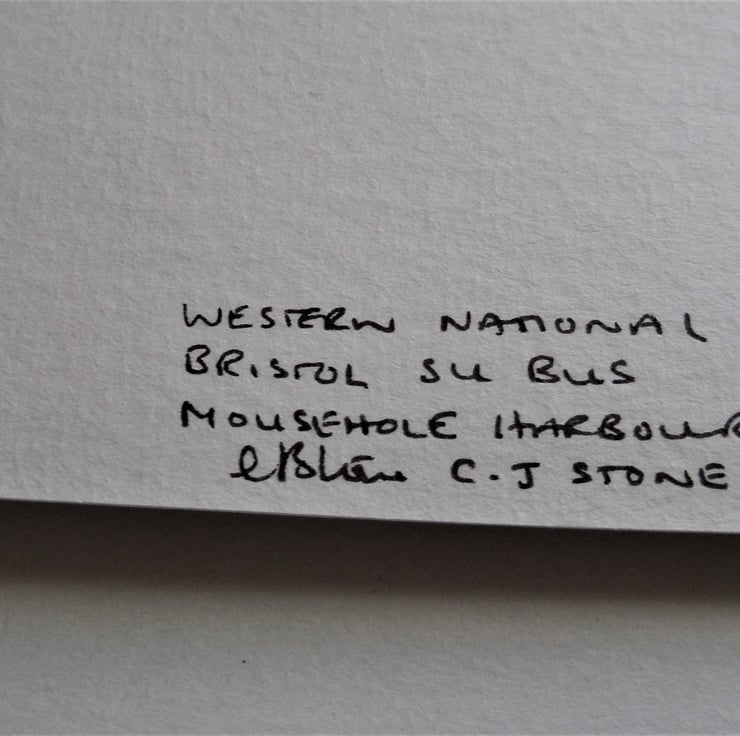 WESTERN NATIONAL
BRISTOL SU BUS
MOUSEHOLE HARBOUR
C.J STONE